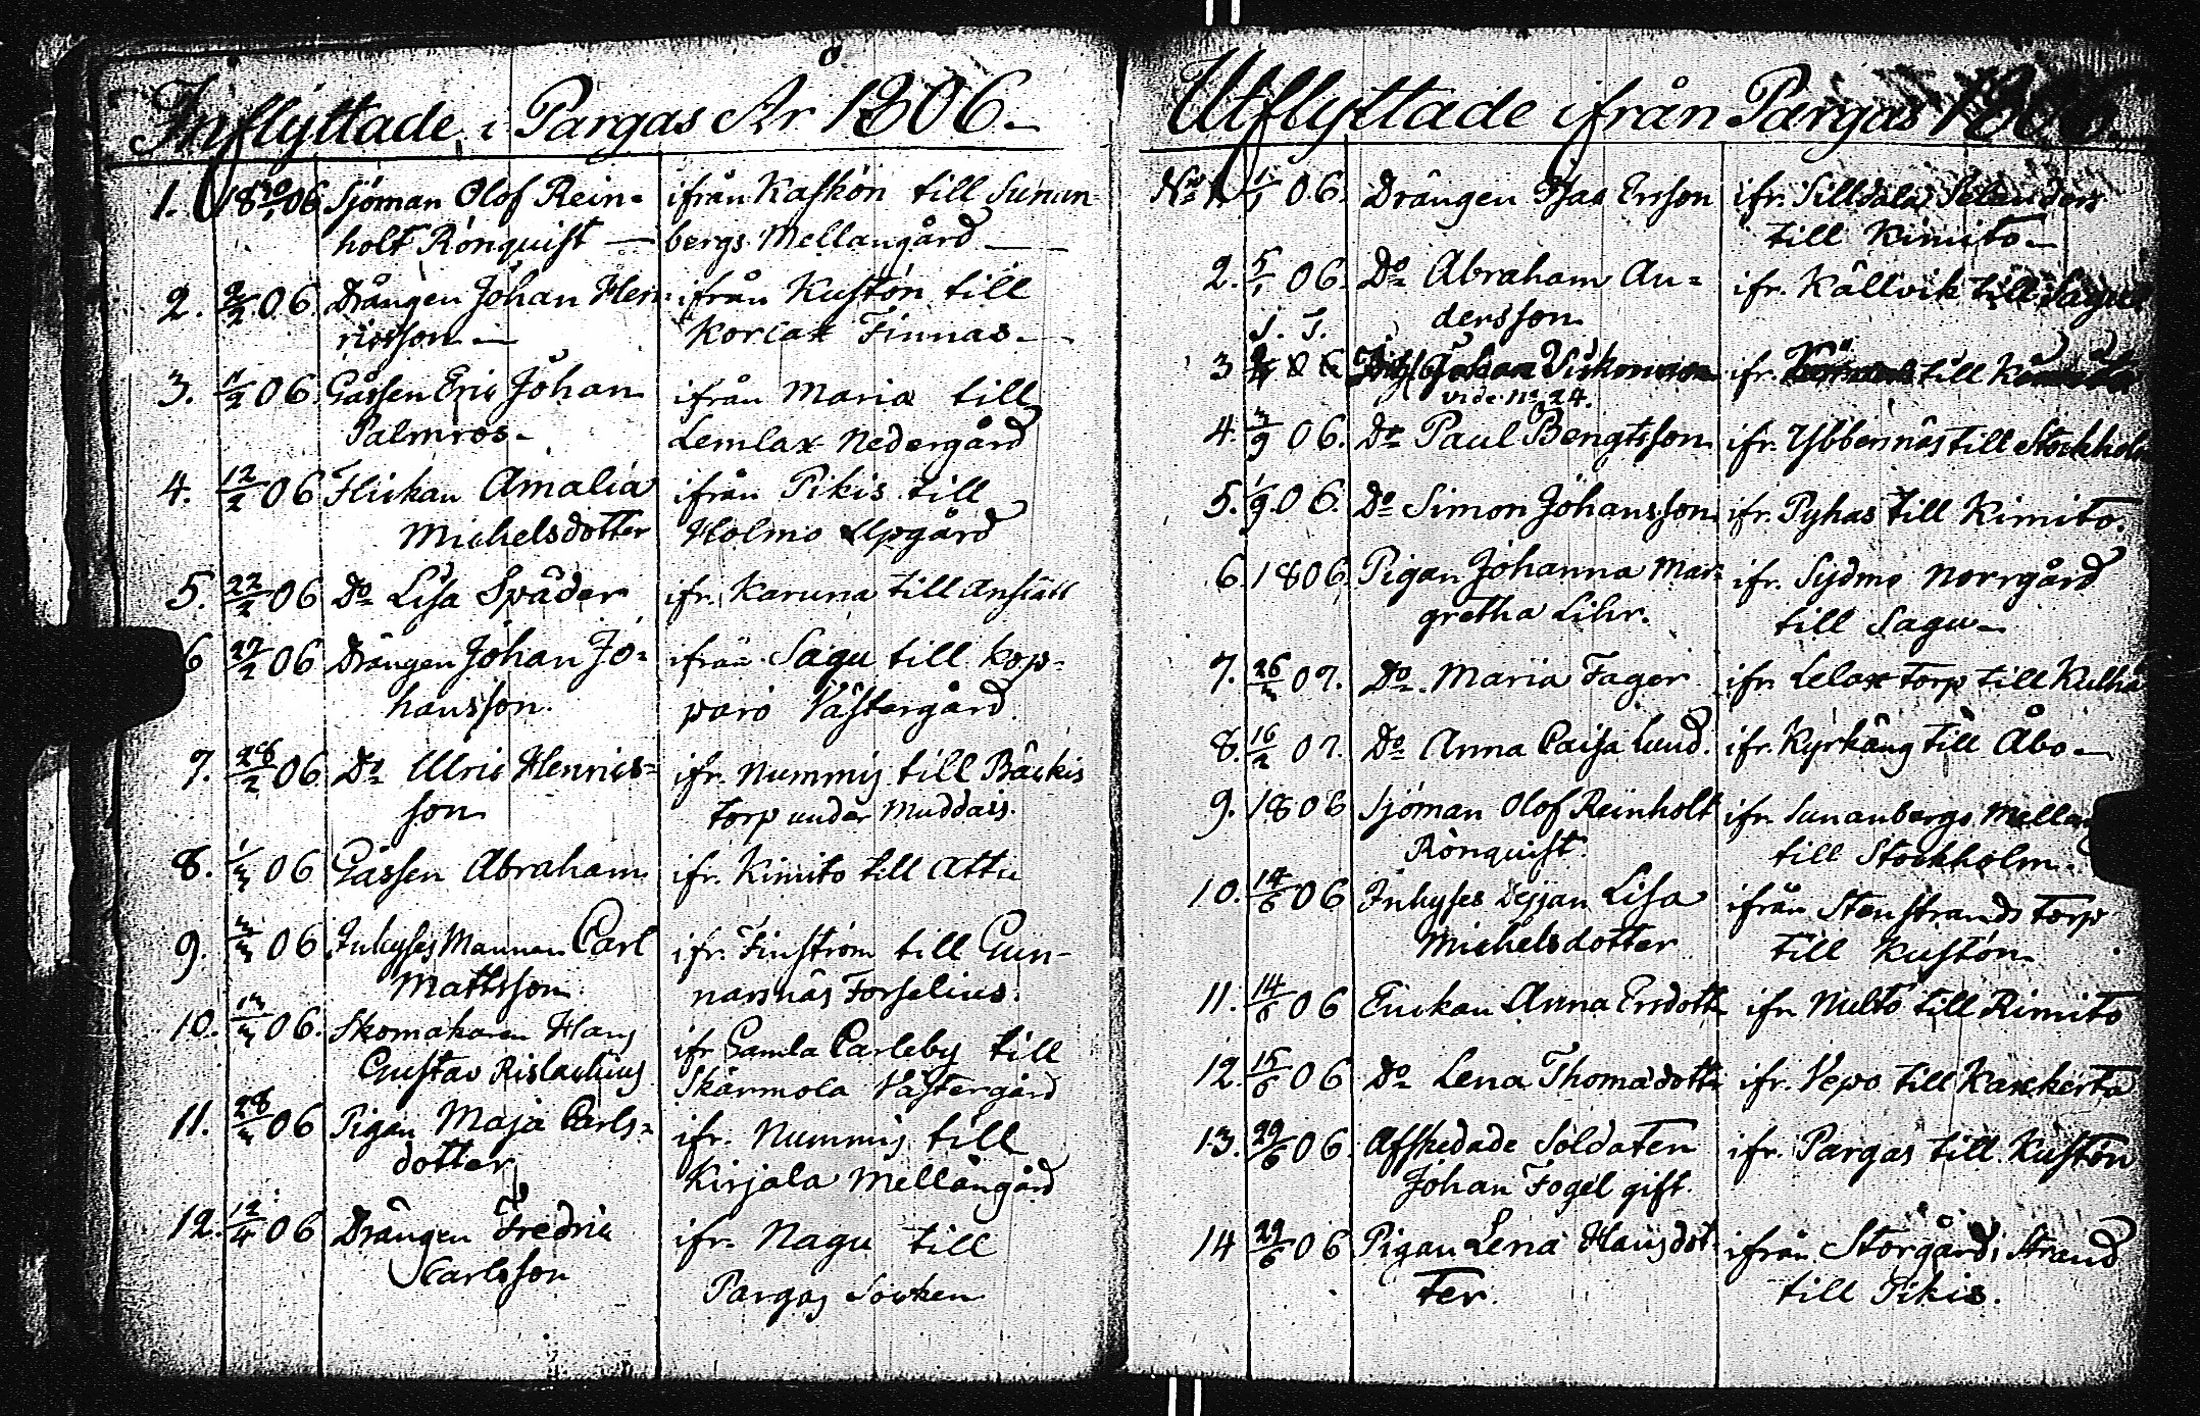 Inflyttade i Pargas År 1806.
1. 18 30/1 06 Sjöman Olof Rein= ifrån Kaskön till Sunnan
holt Rönquist — bergs Mellangård —
2. 2/2 06. Drängen Johan Hen= ifrån Kustön till
ricsson — Korlax Finnas.
3. 11/2 06. Gåssen Eric Johan ifrån Maria till
Palmros — Lemlax Nedergård
4. 12/2 06 Flickan Amalia ifrån Pikis till
Michelsdotter Holmo Upgård
5. 22/2 06 Do Lisa Späder ifr. Karuna till
6 27/2 06 Drängen Johan Jo= ifrån Sagu till Kop=
hansson. parö Västergård.
7. 28/2 06 Do Ulric Henrics= ifr. Nummis till Bäckis
son torp under Muddais.
8. 1/3 06 Gåssen Abraham ifr. Kimito till Attu
9. 3/3 06 Inhyses Mannen Carl ifr. Finström till Gun-
Mattsson narsnäs Forselius.
10. 13/3 06. Skomakaren Hans ifr Gamla Carleby till
Gustav Rislachius Skärmola Västergård
11. 28/3 06 Pigan Maja Carls= ifr. Nummis till
dotter Kirjala Mellangård
12. 12/4 06 Drängen Fredric ifr. Nagu till
Carlsson Pargas Socken
Utflyttade ifrån Pargas 1806.
No 1. 1/1 06. Drängen Isaa Ersson ifr. Silldala
till Kimito —
2. 5/1 06. Do Abraham An= ifr. Källvik till Sagu
dersson
3 06 Johan ifr. till
vide No 24.
4. 3/9 06. Do Paul Bengtsson ifr. Ybbernäs till Stockholm
5. 1/9 06. Do Simon Johansson ifr. Pyhas till Kimito.
6. 1806. Pigan Johanna Mar= ifr. Sydmo Norrgård
gretha Lihr. till Sagu —
7. 26/3 07. Do Maria Fager ifr. Lelax torp till
8. 16/2 07. Do Anna Caisa Lund. ifr. Kyrkäng till Åbo —
9. 1806 Sjöman Olof Reinholt ifr. Sunanbergs Mellang
Rönquist. till Stockholm.
10. 14/6 06 Inhyses Lisa ifrån Stenstrands torp
Michelsdotter till Kustön
11. 14/6 06 Enckan Anna Ersdott ifr. Multo till Rimito
12. 15/6 06 Do Lena Thomasdott ifr. Vepo till Karckerta
13. 29/6 06. Afskedade Soldaten ifr. Pargas till Kustön
Johan Fogel gift.
14 29/6 06 Pigan Lena Hansdot= ifrån Storgårds Strand
ter. till Pikis.